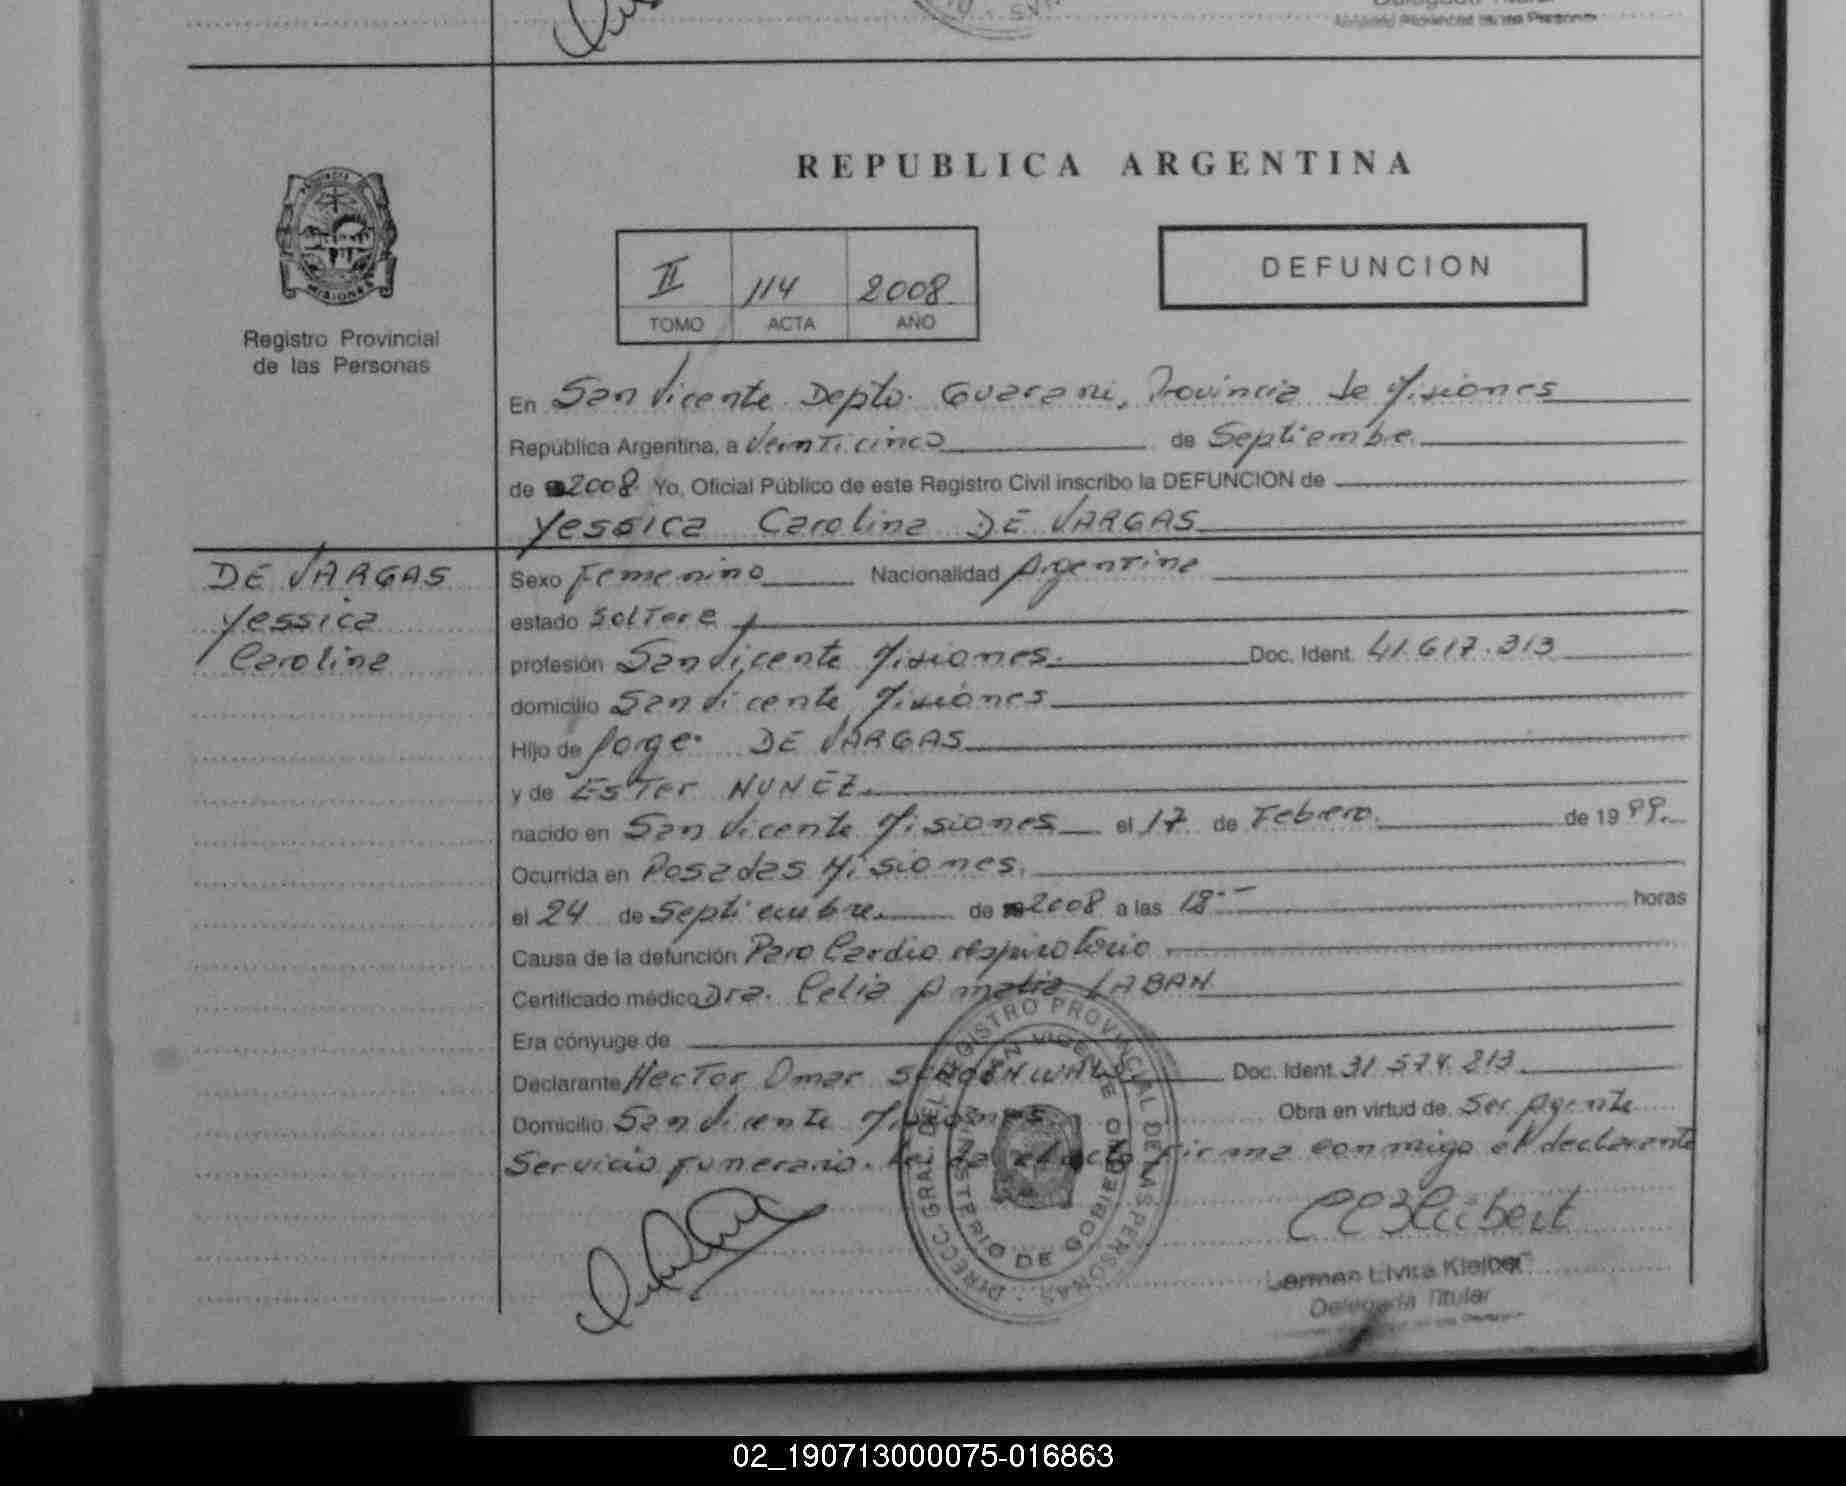 REPUBLICA ARGENTINA
PROVINCIA
MISIONES
Registro Provincial
de las Personas
II 114 2008
TOMO ACTA AÑO
DEFUNCION
En San Vicente Depto. Guarani, Provincia de Misiones
República Argentina, a Veinticinco de Septiembre
de 2008 Yo, Oficial Público de este Registro Civil inscribo la DEFUNCION de
Yessica Carolina DE VARGAS
DE VARGAS
Yessica
Carolina
Sexo Femenino Nacionalidad Argentina
estado Soltera
profesión San Vicente Misiones. Doc. Ident. 41.617.313
domicilio San Vicente Misiones
Hijo de Jorge DE VARGAS
y de Ester NUNEZ
nacido en San Vicente Misiones el 17 de Febrero de 1999.
Ocurrida en Posadas Misiones.
el 24 de Septiembre de 2008 a las 18 horas
Causa de la defunción Paro Cardio respiratorio
Certificado médico Dra. Celia Amalia LABAN
Era cónyuge de
Declarante Hector Omar Doc. Ident. 31.574.213
Domicilio San Vicente Misiones Obra en virtud de Ser Agente
Servicio funerario. Leida el acta firma conmigo el declarante
DIRECC. GRAL. DEL REGISTRO PROVINCIAL DE LAS PERSONAS
SAN VICENTE
MINISTERIO DE GOBIERNO
Kleiber
Delegada Titular
02_190713000075-016863